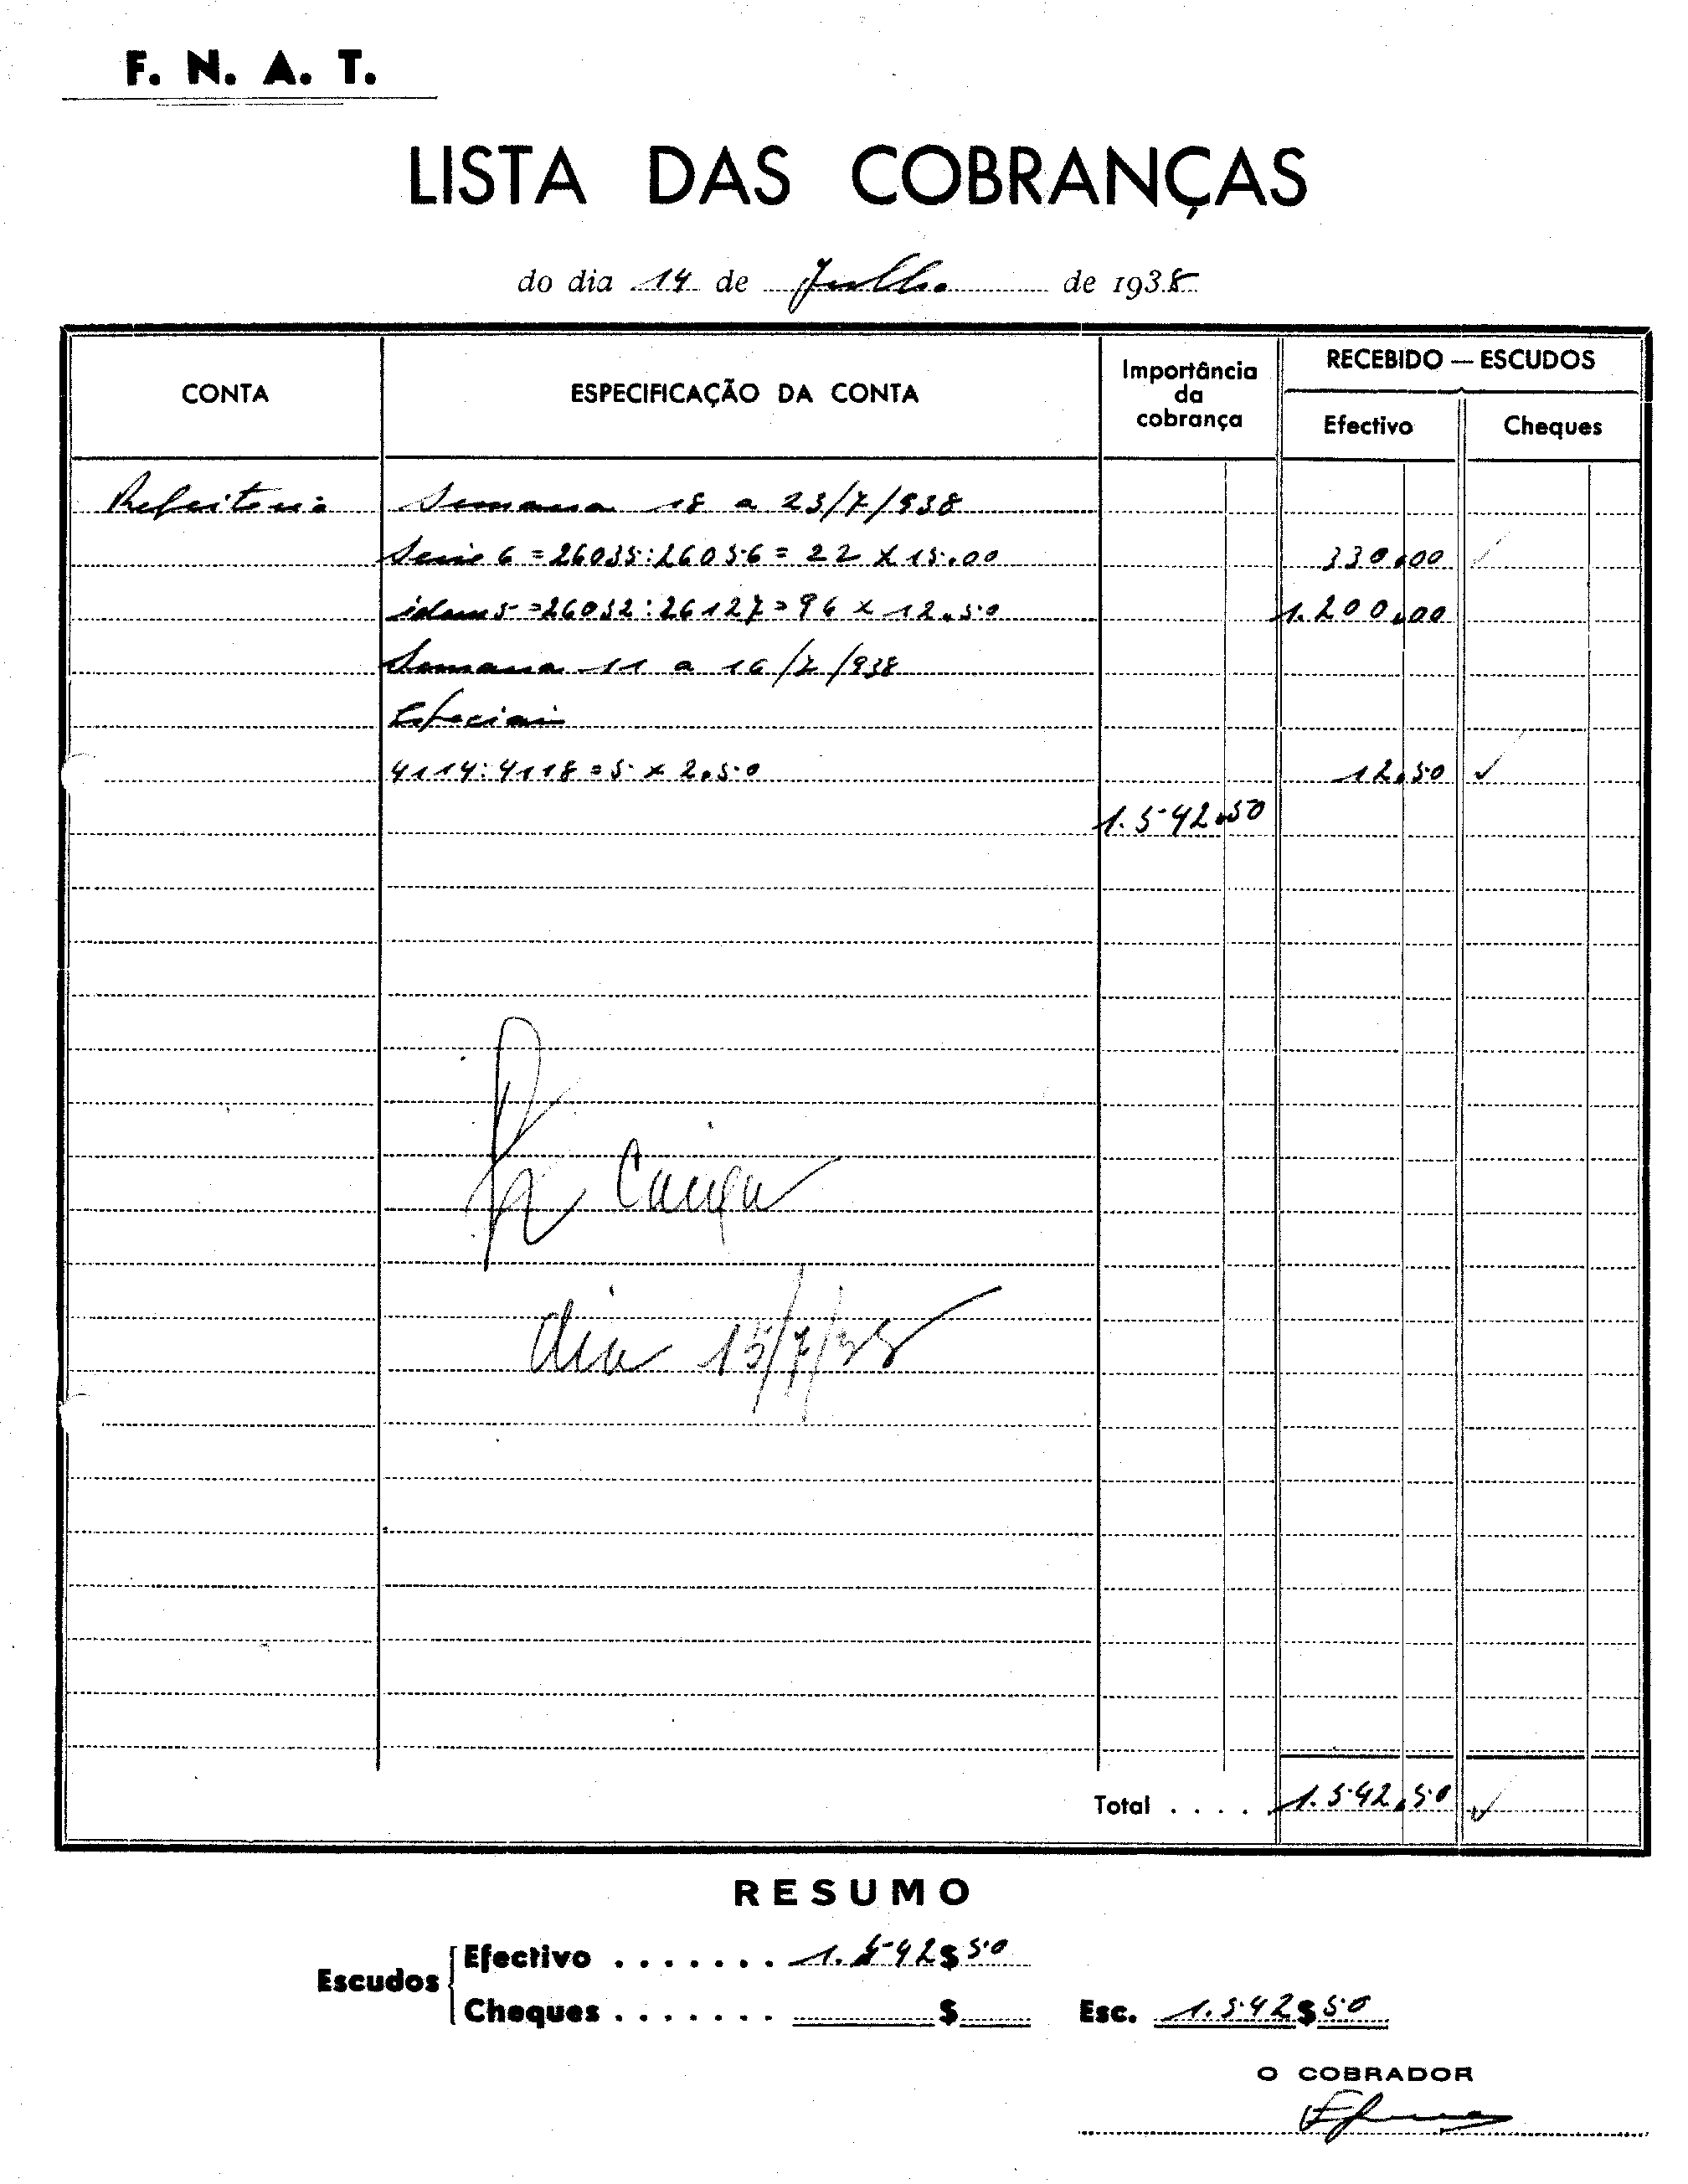 F. N. A. T.
LISTA DAS COBRANÇAS
do dia 14 de Julho de 1938
CONTA
ESPECIFICAÇÃO DA CONTA
Importância da cobrança
RECEBIDO — ESCUDOS
Efectivo
Cheques
Refeitorio Semana 18 a 23/7/938
Serie 6 = 26035:26056 = 22 x 15.00 330.00 ✓
idem 5 = 26032:26127 = 96 x 12.50 1.200.00
Semana 11 a 16/7/938
Especiais
4114:4118 = 5 x 2.50 12.50 ✓
1.542.50
Caixa
dia 15/7/38
Total . . . . . 1.542.50 ✓
RESUMO
Escudos
Efectivo . . . . . . . 1.542$50
Cheques . . . . . . . $ Esc. 1.542$50
O COBRADOR